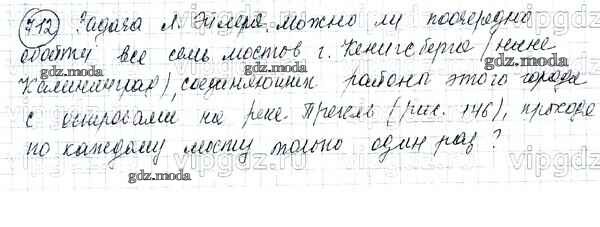 712 Задача Л. Эйлера. можно ли поочередно
обойти все семь мостов г. Кенигсберга (ныне
Калининград), соединяющих районы этого города
с островами на реке Прегель (рис. 146), проходя
по каждому мосту только один раз?
gdz.moda
gdz.moda
gdz.moda
gdz.moda
vipgdz.ru
vipgdz